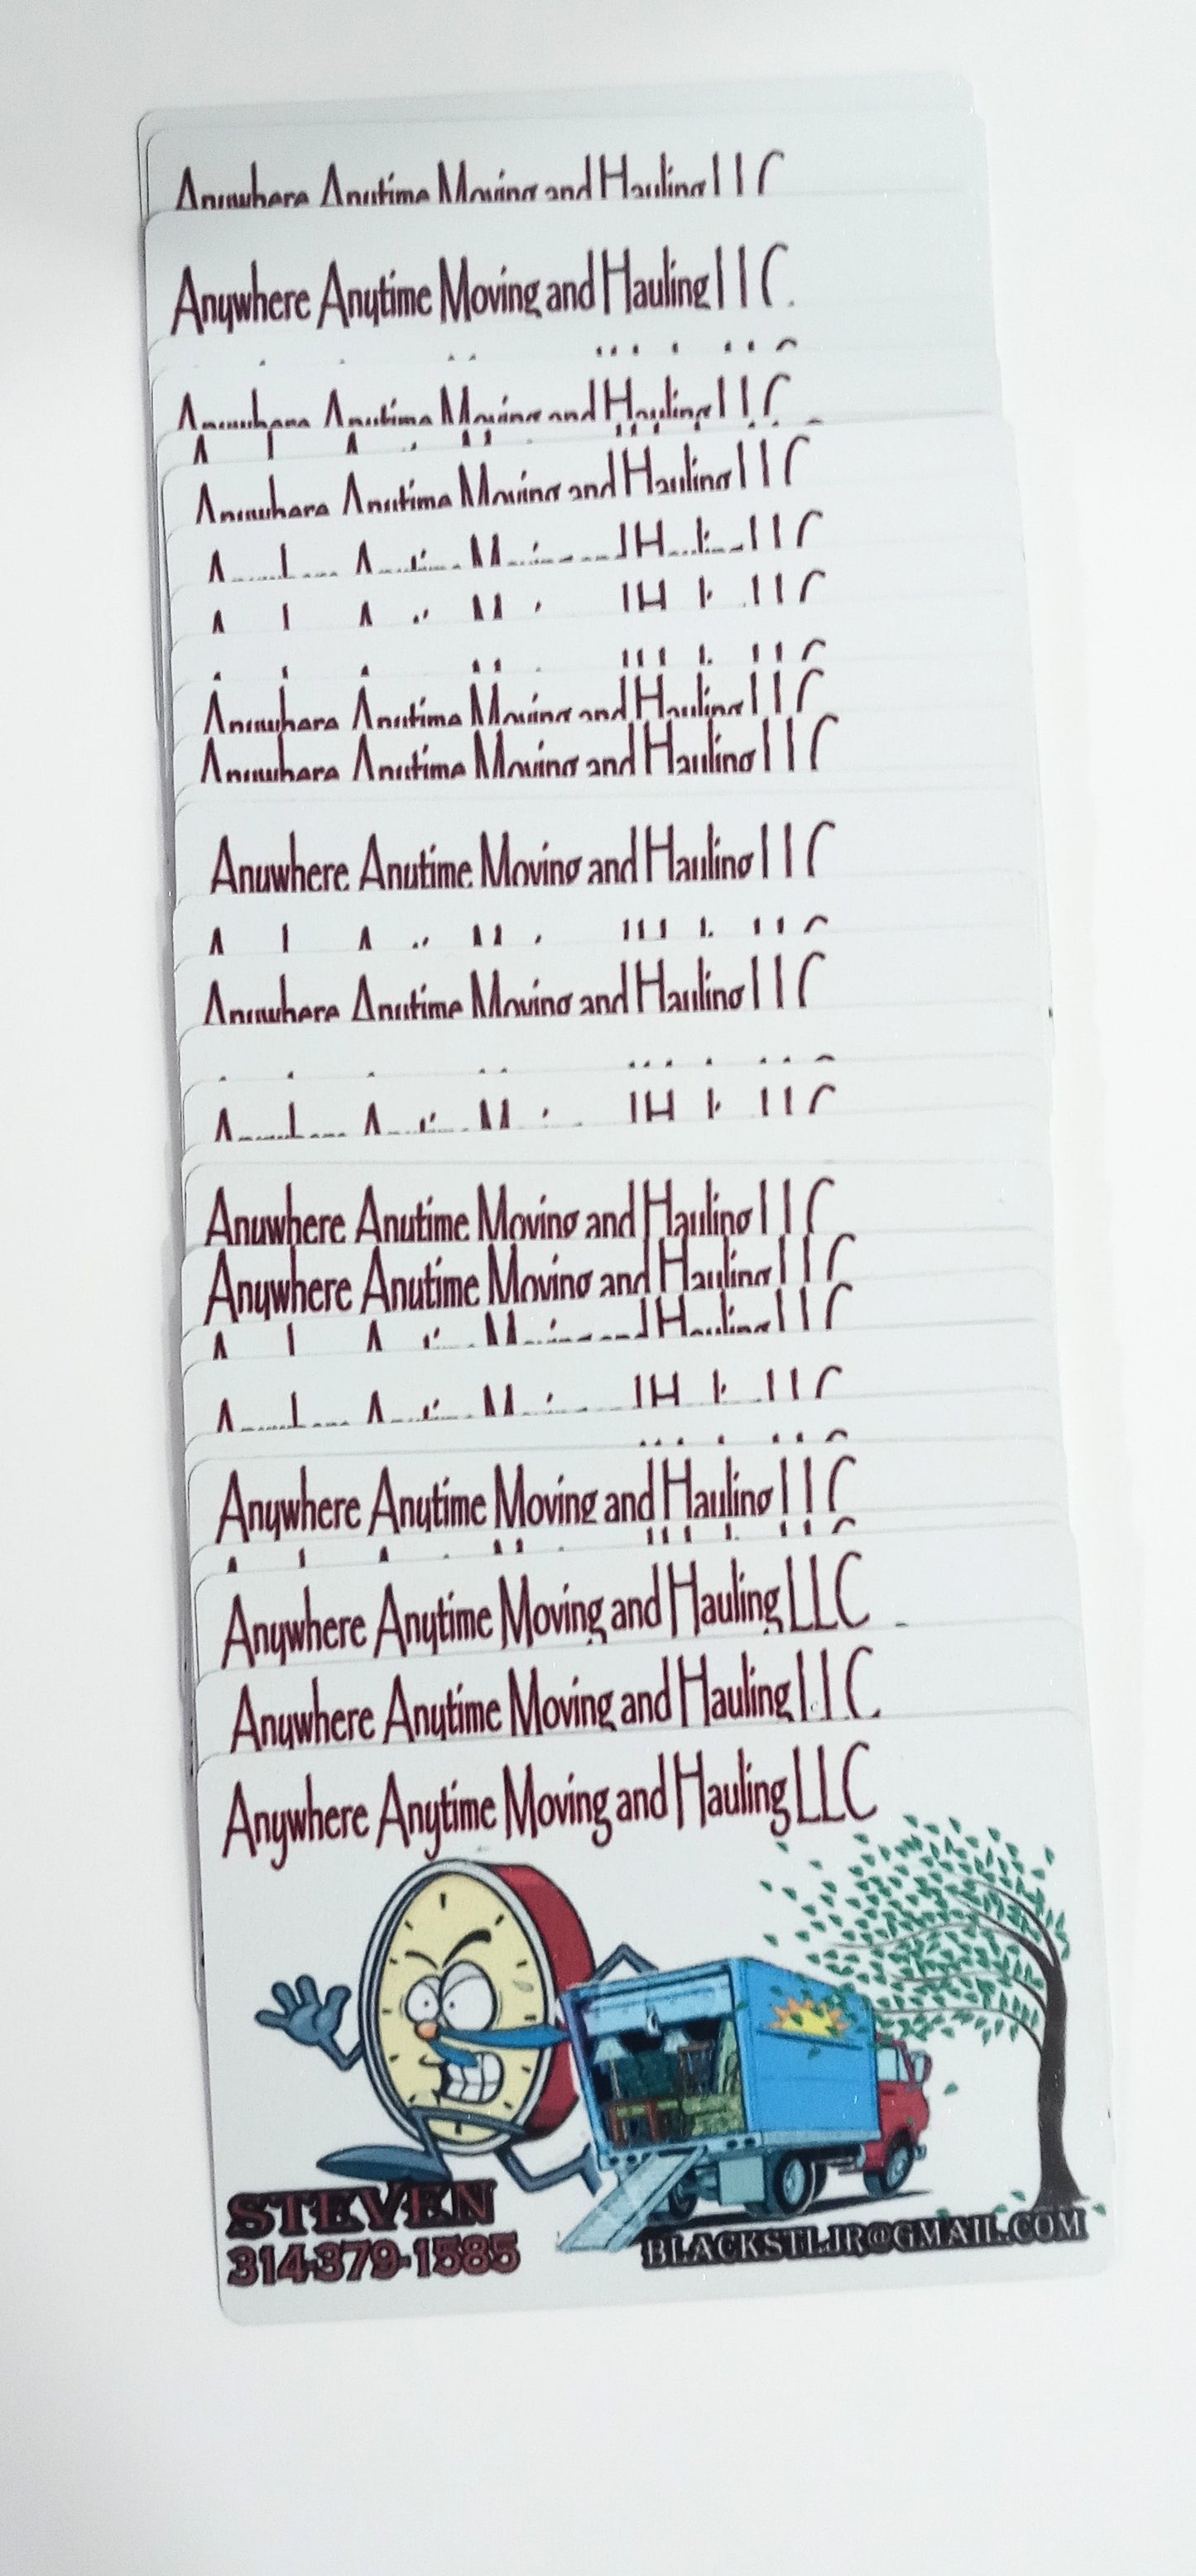 Anywhere Anytime Moving and Hauling LLC
Anywhere Anytime Moving and Hauling LLC
Anywhere Anytime Moving and Hauling LLC
Anywhere Anytime Moving and Hauling LLC
Anywhere Anytime Moving and Hauling LLC
Anywhere Anytime Moving and Hauling LLC
Anywhere Anytime Moving and Hauling LLC
Anywhere Anytime Moving and Hauling LLC
Anywhere Anytime Moving and Hauling LLC
Anywhere Anytime Moving and Hauling LLC
Anywhere Anytime Moving and Hauling LLC
Anywhere Anytime Moving and Hauling LLC
Anywhere Anytime Moving and Hauling LLC
Anywhere Anytime Moving and Hauling LLC
STEVEN
314-379-1585
BLACKSTLJR@GMAIL.COM